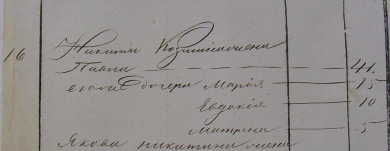 16 Никиты Козминa жена
Павла 41
его же дочери Марья 15
Евдокія 10
Матрена 5
Якова никитина жена